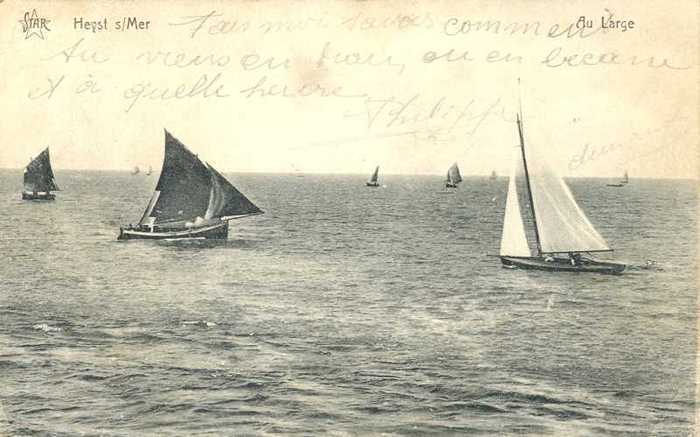 STAR Heyst s/Mer Au Large
Fais moi savoir comment
tu viens en tram, ou en bécane
et à quelle heure
Philippe